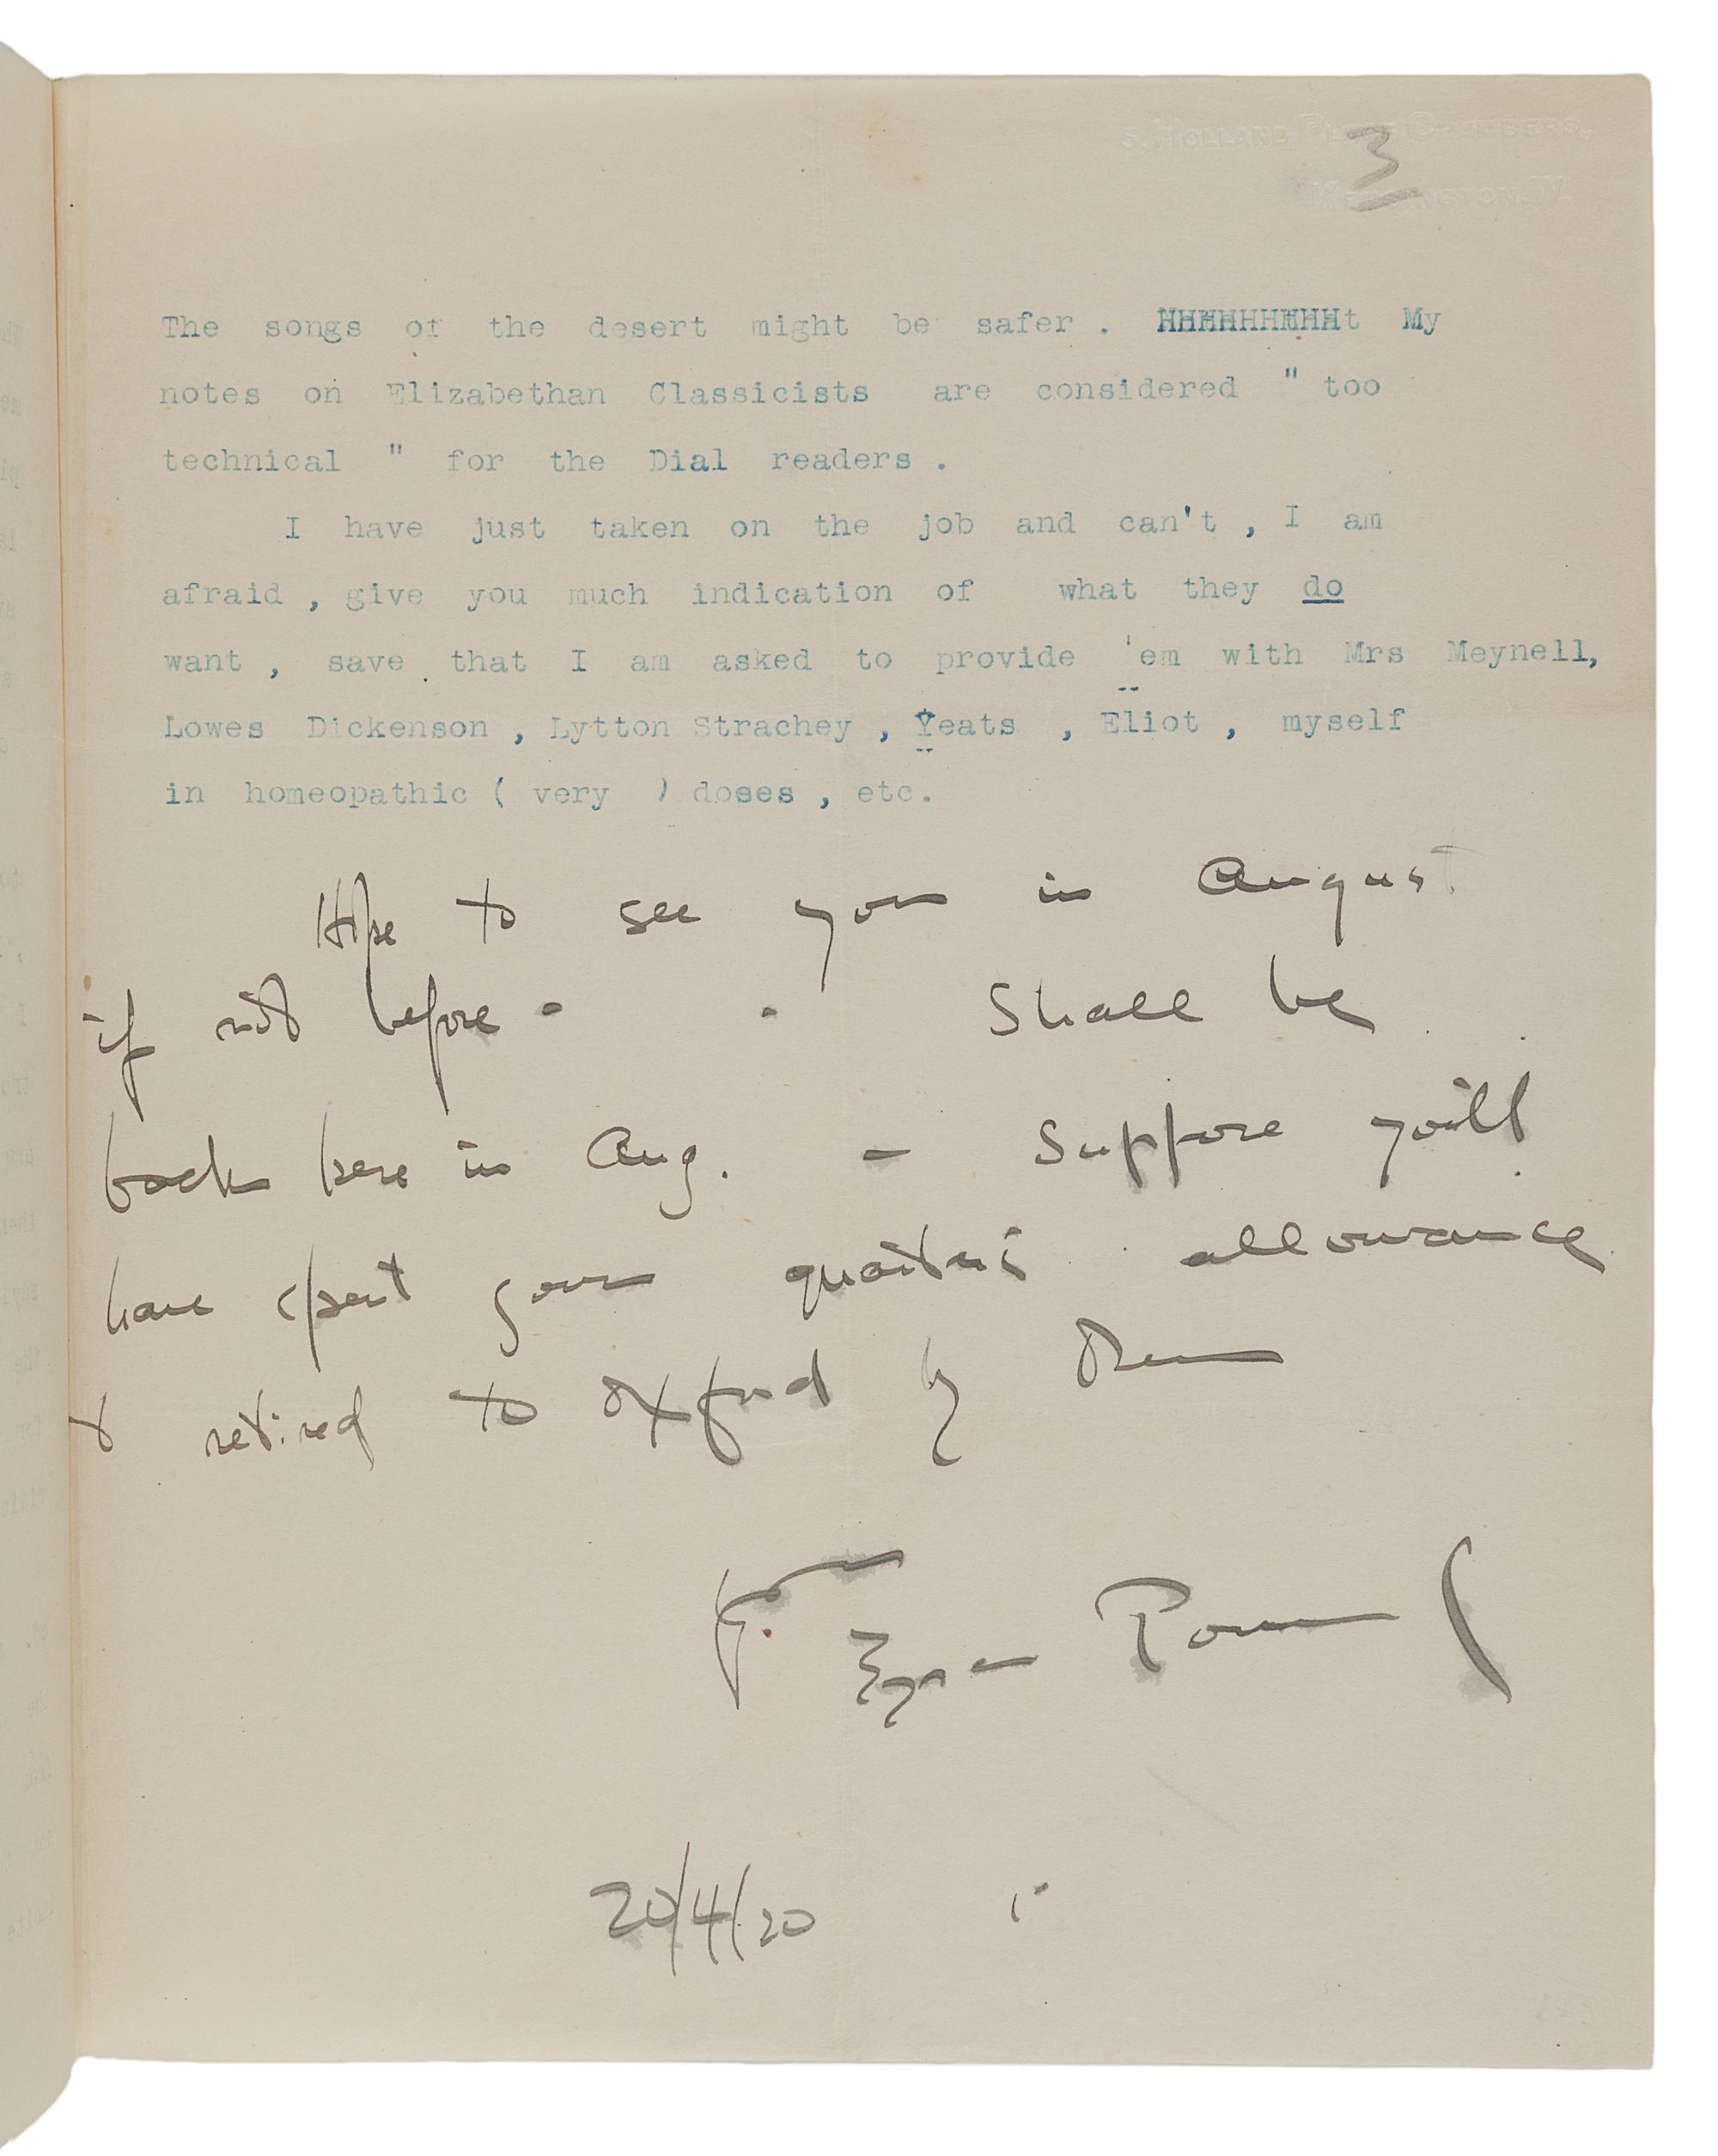 5, HOLLAND PLACE CHAMBERS,
KENSINGTON. W.
3
The songs of the desert might be safer . HHHHHHHHHt My
notes on Elizabethan Classicists are considered " too
technical " for the Dial readers .
I have just taken on the job and can't , I am
afraid , give you much indication of what they do
want , save that I am asked to provide 'em with Mrs Meynell,
Lowes Dickenson , Lytton Strachey , Yeats , Eliot , myself
in homeopathic ( very ) doses , etc.
Hope to see you in August
if not before - - Shall be
back here in Aug. - Suppose you'll
have spent your quarter's allowance
& retired to Oxford by then
Ezra Pound
20/4/20